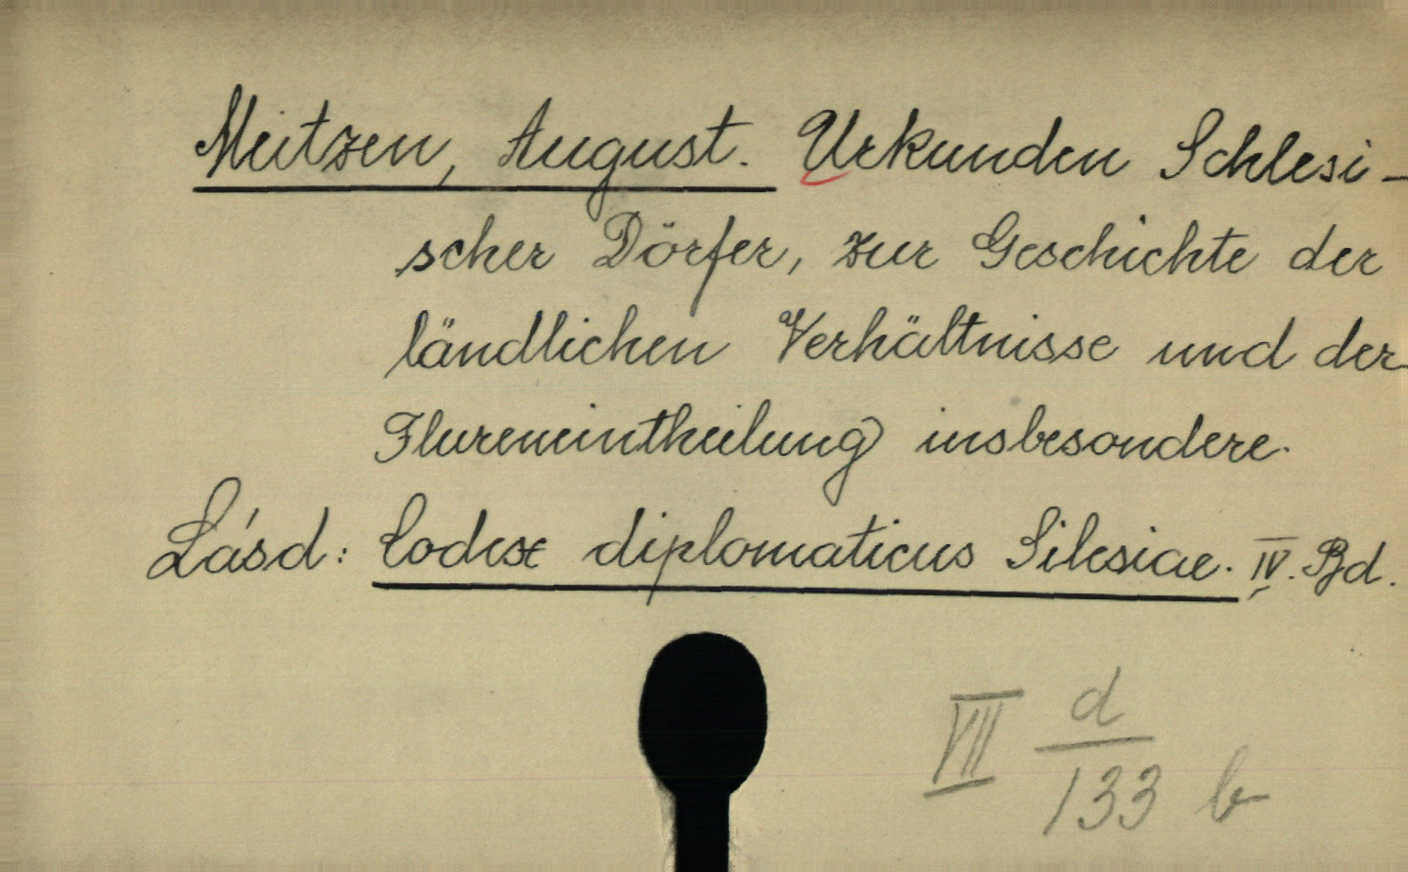 Meitzen, August. Urkunden Schlesi-
scher Dörfer, zur Geschichte der
ländlichen Verhältnisse und der
Flureneintheilung insbesondere.
Lásd: Codex diplomaticus Silesiae. IV. Bd.
VII d/133 b